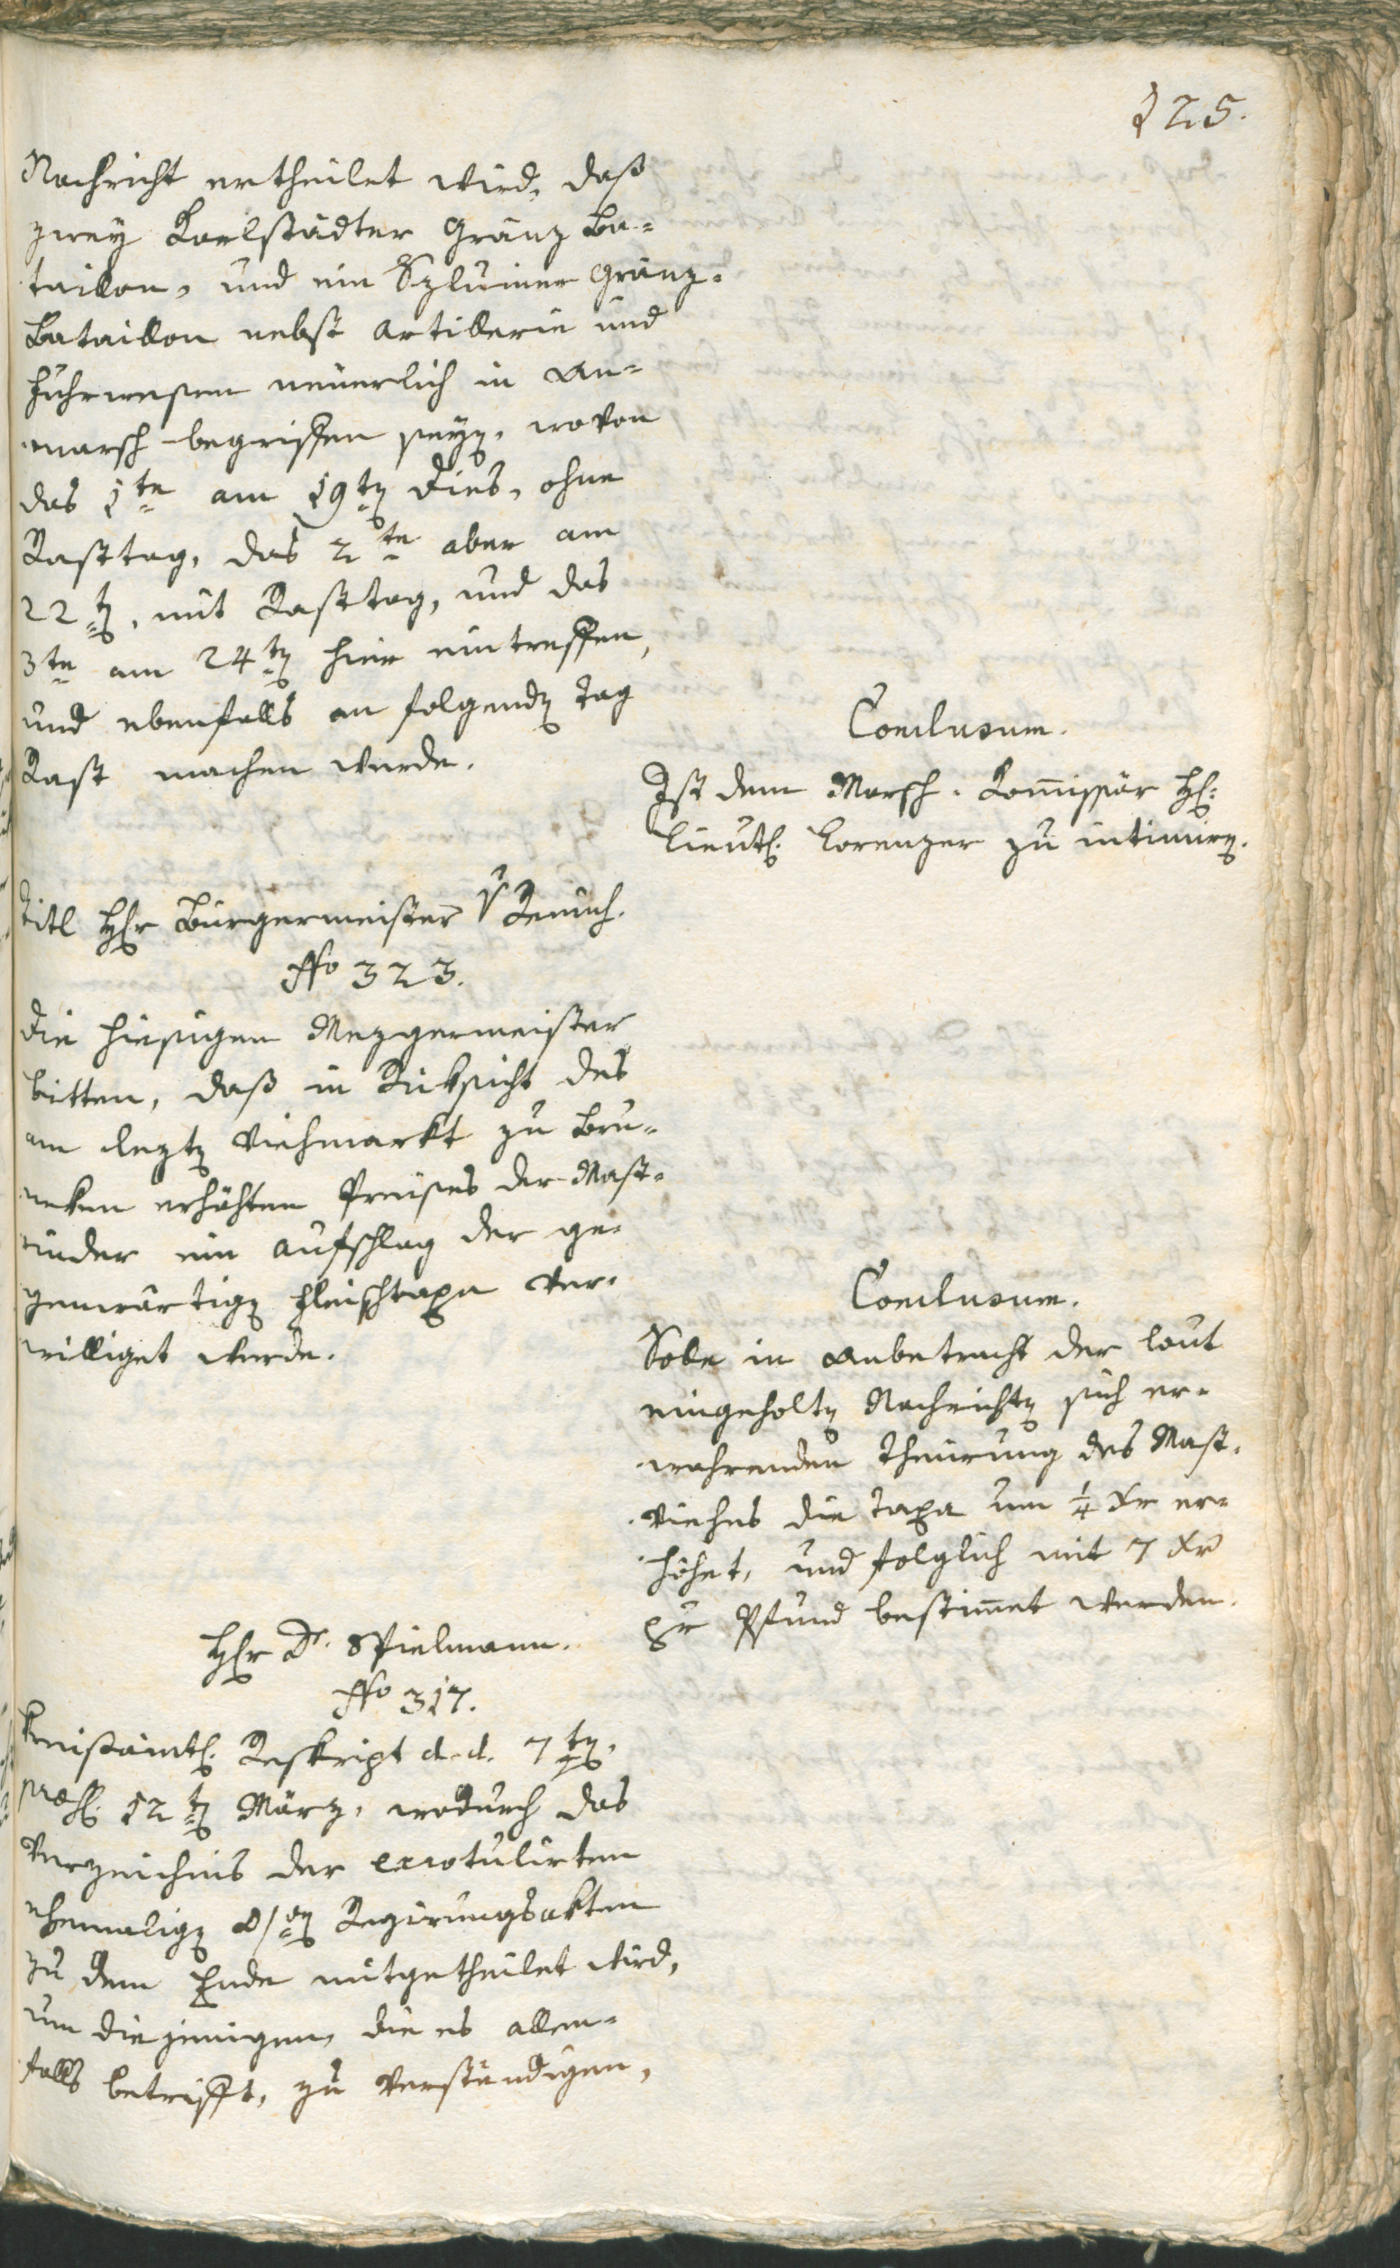 125.
Nachricht ertheilet wird, daß
zwey Karlstädter Gränz Ba-
taillon, und ein Szluiner Gränz-
Bataillon nebst Artillerie und
Fuhrwesen neüerlich in An-
marsch begriffen seyen, wovon
das 1te am 19ten dies, ohne
Rasttag, das 2te aber am
22ten, mit Rasttag, und das
3te am 24ten hier eintreffen,
und ebenfalls an folgenden Tag
Rast machen werde.
Conclusum.
Ist dem Marsch-Kommissär H:
Lieut. Lorenzer zu intimiren.
Titl Herr Bürgermeister v
No 323.
Die hiesigen Mezgermeister
bitten, daß in Rüksicht des
am lezten Viehmarkt zu Bru-
neken erhöhten Preises der Mast-
rinder ein Aufschlag der ge-
genwärtigen Fleischtaxe ver-
williget werde.
Conclusum.
Solle in Anbetracht der laut
eingeholten Nachrichten sich er-
wahrenden Theürung des Mast-
viehes die Taxe um 1/4 Xr er-
höhet, und folglich mit 7 Xr
pr Pfund bestimmet werden.
Herr Dr. Spielmann.
No 317.
Kreisämtl. Reskript d.d. 7ten,
præs. 12ten März, wodurch das
Verzeichnis der exrotulirten
ehemaligen Regirungsakten
zu dem Ende mitgetheilet wird,
um diejenigen, die es allen-
falls betrifft, zu verständigen,